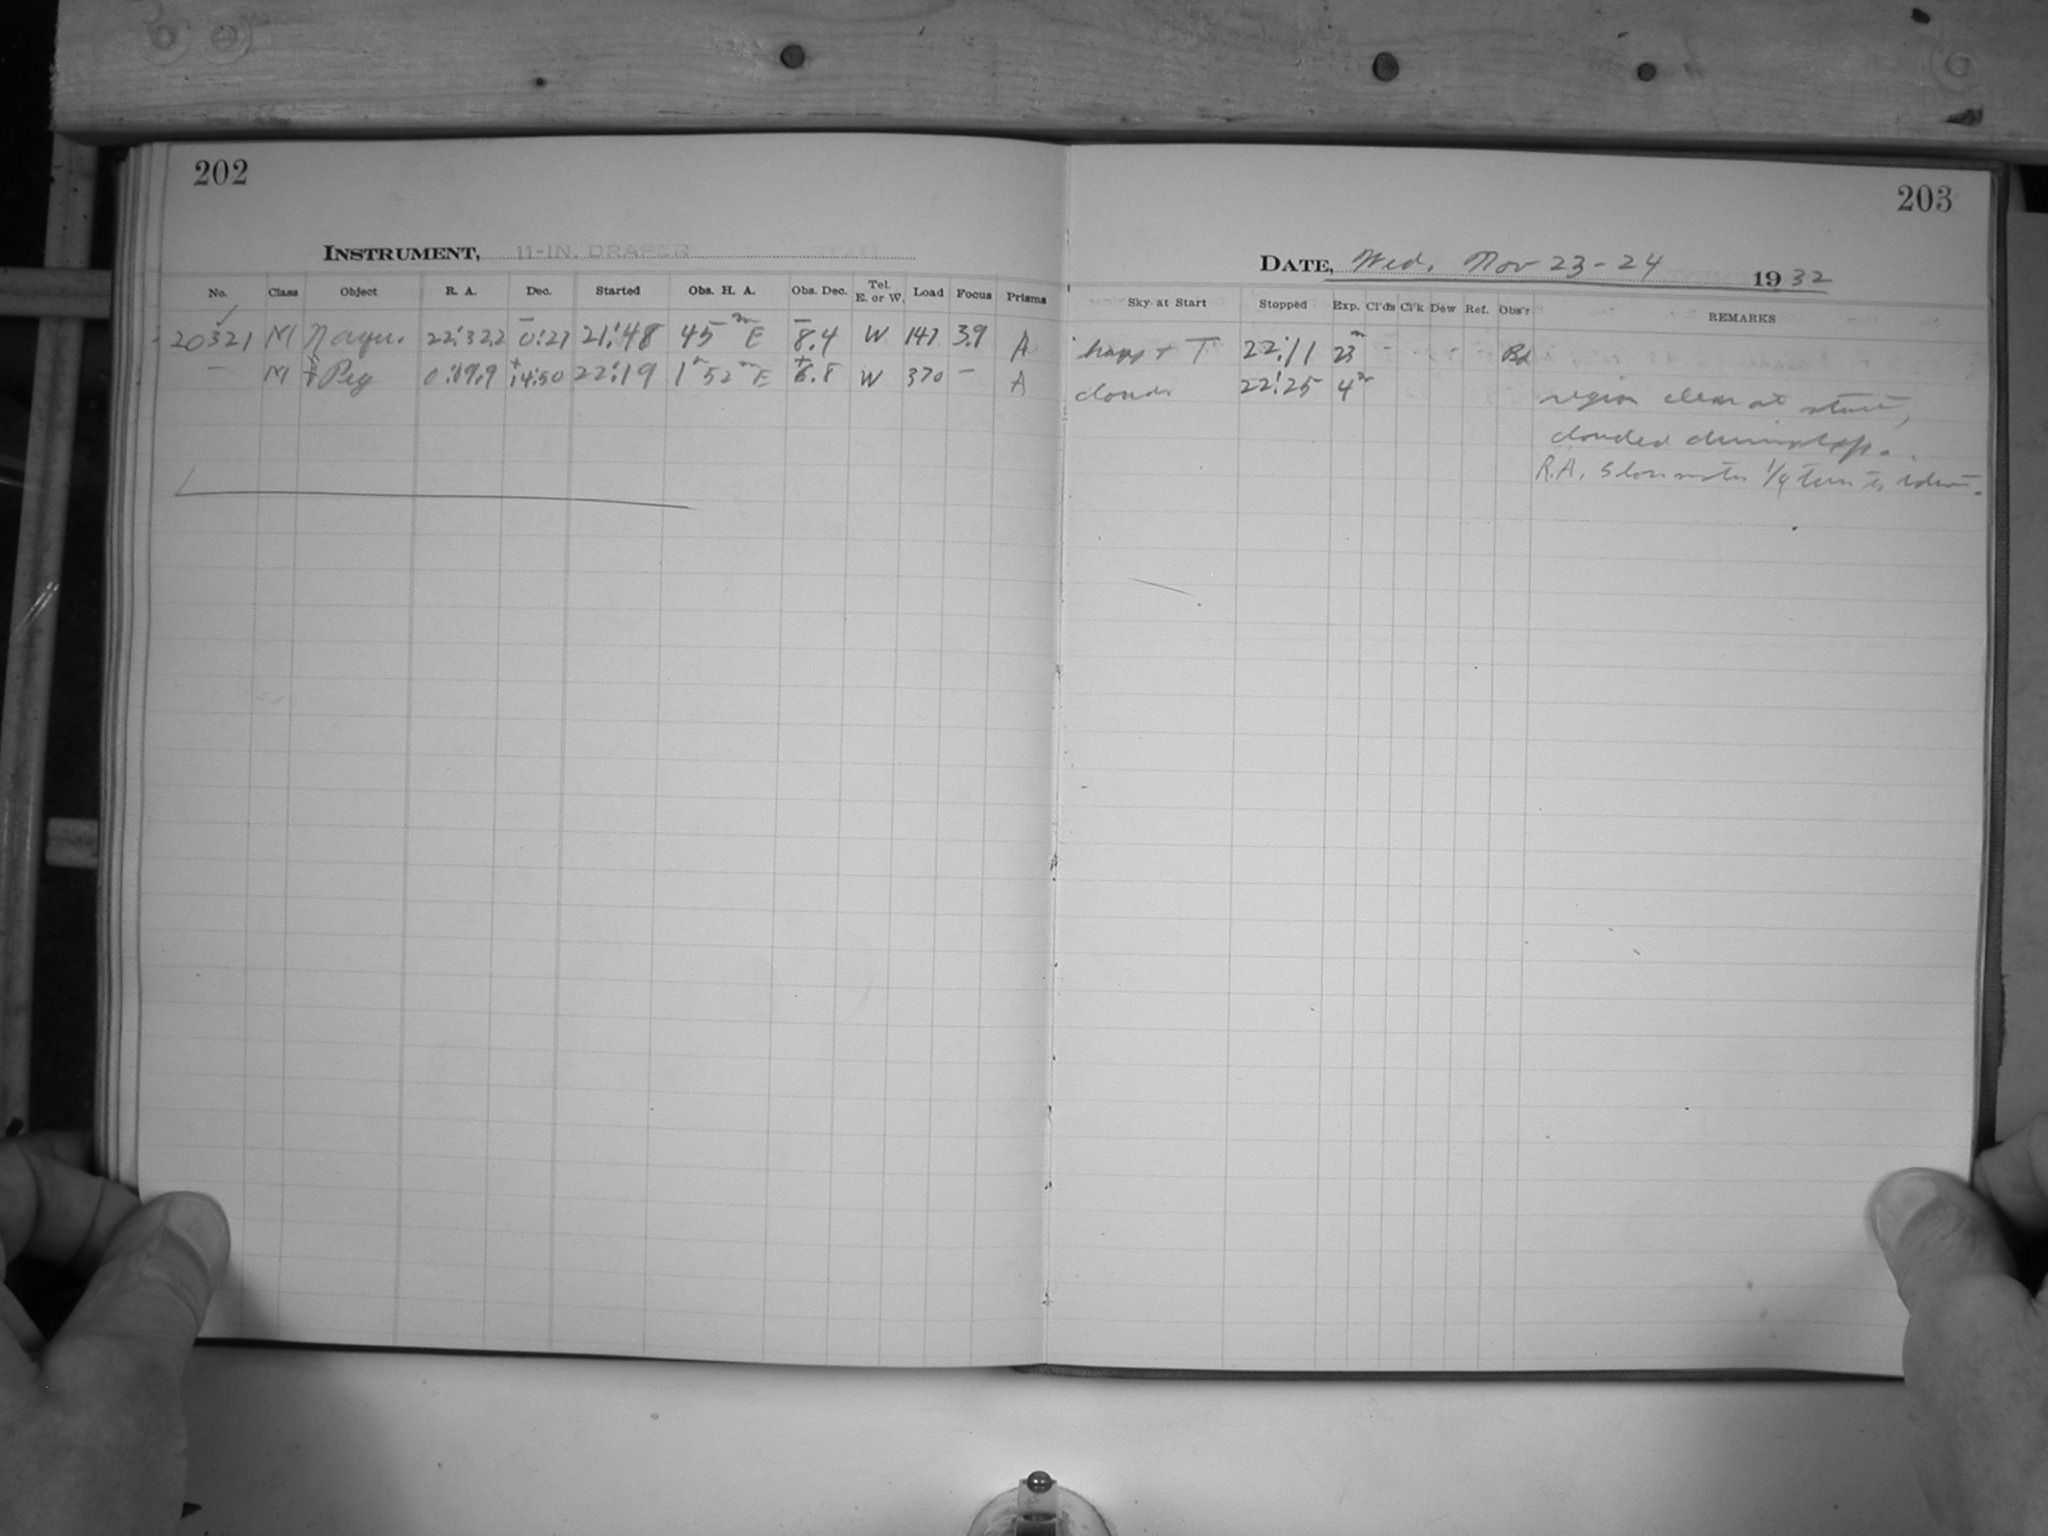 202
203
INSTRUMENT, 11-IN. DRAPER
DATE, Wed. Nov 23-24 1932
No. Class Object R. A. Dec. Started Obs. H. A. Obs. Dec. Tel. E. or W. Load Focus Prisms Sky at Start Stopped Exp. Cl'ds Cl'k Dew Ref. Obs'r REMARKS
20321 M 22:32.2 -0:27 21:48 45m E -8.4 W 147 3.9 A hazy + T 22:11 23m - Bd
- M Peg 0:09.9 +14:50 22:19 1h 52m E +6.8 W 370 - A clouds 22:25 4m
region clear at start,
clouded during exp.
R.A. Slow motion 1/4 turn to